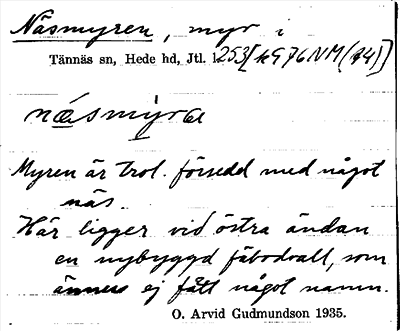 Näsmyren, myr i
Tännäs sn, Hede hd, Jtl. 1253[kG76NM(74)]
näsmýra
Myren är trol. försedd med något
näs.
Här ligger vid östra ändan
en nybyggd fäbodvall, som
ännu ej fått något namn.
O. Arvid Gudmundson 1935.